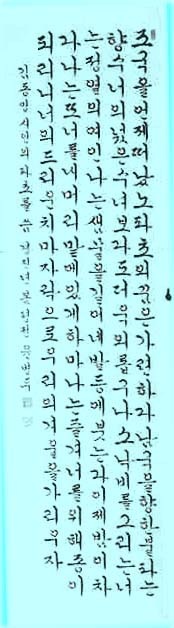 조국을언제떠났노파초의꿈은가련하다남국을향한불타는
향수너의넋은수녀보다도더욱외롭구나소낙비를그리는너
는정열의여인나는샘물을길어네발등에붓는다이제밤이차
다나는또너를내머리맡에있게하마나는즐겨너를위해종이
되리니너의드리운치마자락으로우리의겨울을가리우자
김동명시인의파초를